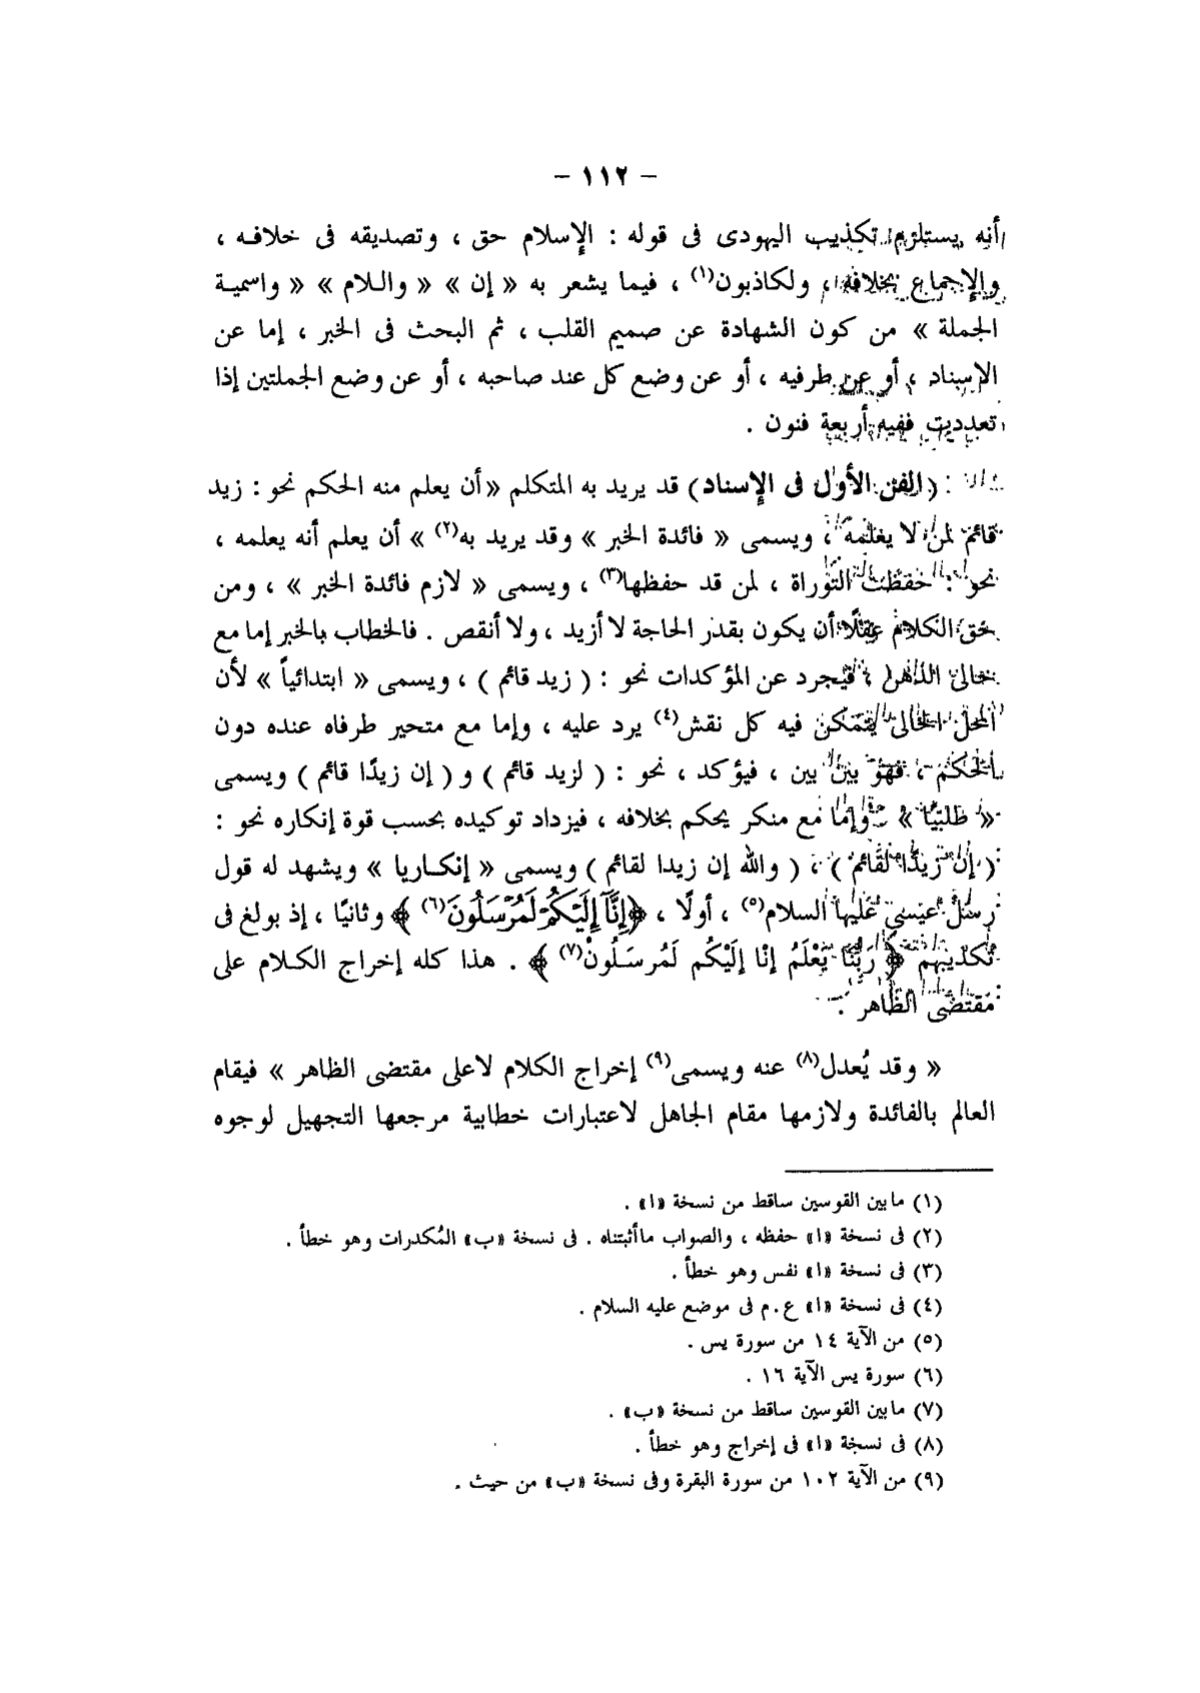 - ١١٢ -
أنه يستلزم تكذيب اليهودى فى قوله : الإسلام حق ، وتصديقه فى خلافه ،
والإجماع بخلافه ، ولكاذبون(١) ، فيما يشعر به « إن » « واللام » « واسمية
الجملة » من كون الشهادة عن صميم القلب ، ثم البحث فى الخبر ، إما عن
الإسناد ، أو عن طرفيه ، أو عن وضع كل عند صاحبه ، أو عن وضع الجملتين إذا
تعددت ففيه أربعة فنون .
( الفن الأول فى الإسناد ) قد يريد به المتكلم « أن يعلم منه الحكم نحو : زيد
قائم لمن لا يعلمه ، ويسمى « فائدة الخبر » وقد يريد به(٢) » أن يعلم أنه يعلمه ،
نحو : حفظت التوراة ، لمن قد حفظها(٣) ، ويسمى « لازم فائدة الخبر » ، ومن
حق الكلام عقلًا أن يكون بقدر الحاجة لا أزيد ، ولا أنقص . فالخطاب بالخبر إما مع
خالى الذهن ، فيجرد عن المؤكدات نحو : ( زيد قائم ) ، ويسمى « ابتدائياً » لأن
المحل الخالى يتمكن فيه كل نقش(٤) يرد عليه ، وإما مع متحير طرفاه عنده دون
الحكم ، فهو بين بين ، فيؤكد ، نحو : ( لزيد قائم ) و ( إن زيدًا قائم ) ويسمى
« طلبيًا » وإما مع منكر يحكم بخلافه ، فيزداد توكيده بحسب قوة إنكاره نحو :
( إن زيدًا لقائم ) ، ( والله إن زيدا لقائم ) ويسمى « إنكاريا » ويشهد له قول
رسل عيسى عليها السلام(٥) ، أولًا ، ﴿إِنَّآ إِلَيْكُمْ لَمُرْسَلُونَ(٦) ﴾ وثانيًا ، إذ بولغ فى
تكذيبهم ﴿ رَبُّنَا يَعْلَمُ إنْا إلَيْكُم لَمُرسَلُونْ(٧) ﴾ . هذا كله إخراج الكلام على
مقتضى الظاهر .
« وقد يُعدل(٨) عنه ويسمى(٩) إخراج الكلام لاعلى مقتضى الظاهر » فيقام
العالم بالفائدة ولازمها مقام الجاهل لاعتبارات خطابية مرجعها التجهيل لوجوه
(١) مابين القوسين ساقط من نسخة «ا» .
(٢) فى نسخة «ا» حفظه ، والصواب ماأثبتناه . فى نسخة «ب» المُكدرات وهو خطأ .
(٣) فى نسخة «ا» نفس وهو خطأ .
(٤) فى نسخة «ا» ع.م فى موضع عليه السلام .
(٥) من الآية ١٤ من سورة يس .
(٦) سورة يس الآية ١٦ .
(٧) مابين القوسين ساقط من نسخة «ب» .
(٨) فى نسخة «ا» فى إخراج وهو خطأ .
(٩) من الآية ١٠٢ من سورة البقرة وفى نسخة «ب» من حيث .